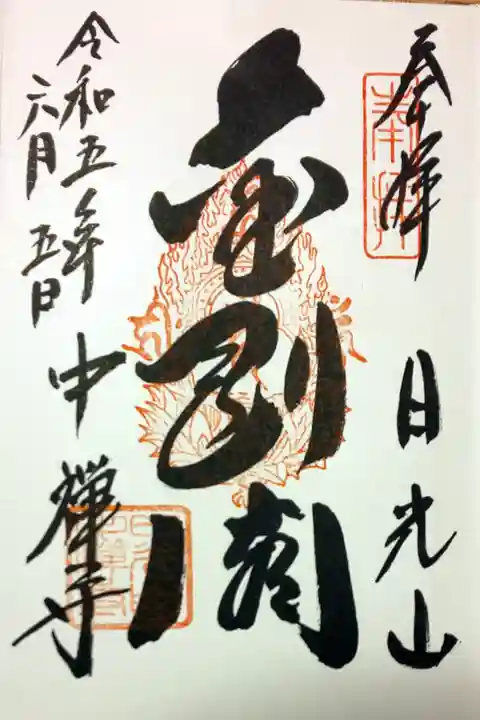 奉拝
奉拝
日光山
金剛閣
令和五年
六月五日
中禅寺